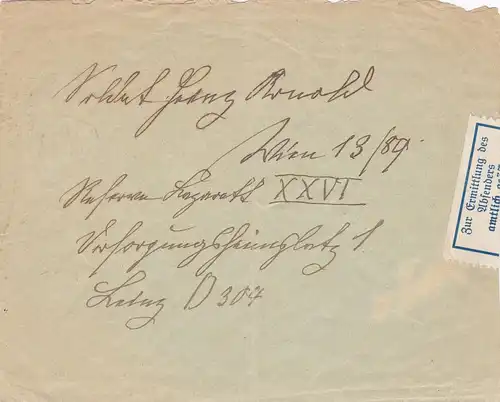 Soldat Heinz Arnold
Wien 13/89.
Reserve Lazarett XXVI
Versorgungsheimplatz 1
Lainz D 304
Zur Ermittlung des
Absenders
amtlich